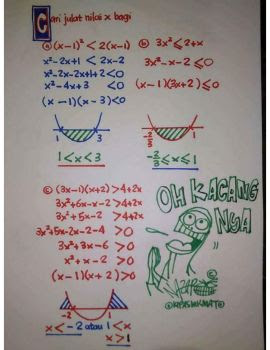 Cari julat nilai x bagi
(a) (x-1)² < 2(x-1)
x²-2x+1 < 2x-2
x²-2x-2x+1+2 <0
x²-4x+3 <0
(x-1)(x-3) <0
1 3
1 < x < 3
(b) 3x² ≤ 2+x
3x²-x-2 ≤ 0
(x-1)(3x+2) ≤ 0
-2/3 1
-2/3 ≤ x ≤ 1
(c) (3x-1)(x+2) > 4+2x
3x²+6x-x-2 > 4+2x
3x²+5x-2 > 4+2x
3x²+5x-2x-2-4 > 0
3x²+3x-6 > 0
x²+x-2 > 0
(x-1)(x+2) > 0
-2 1
x < -2 atau 1 < x
x > 1
OH KACANG
NYA